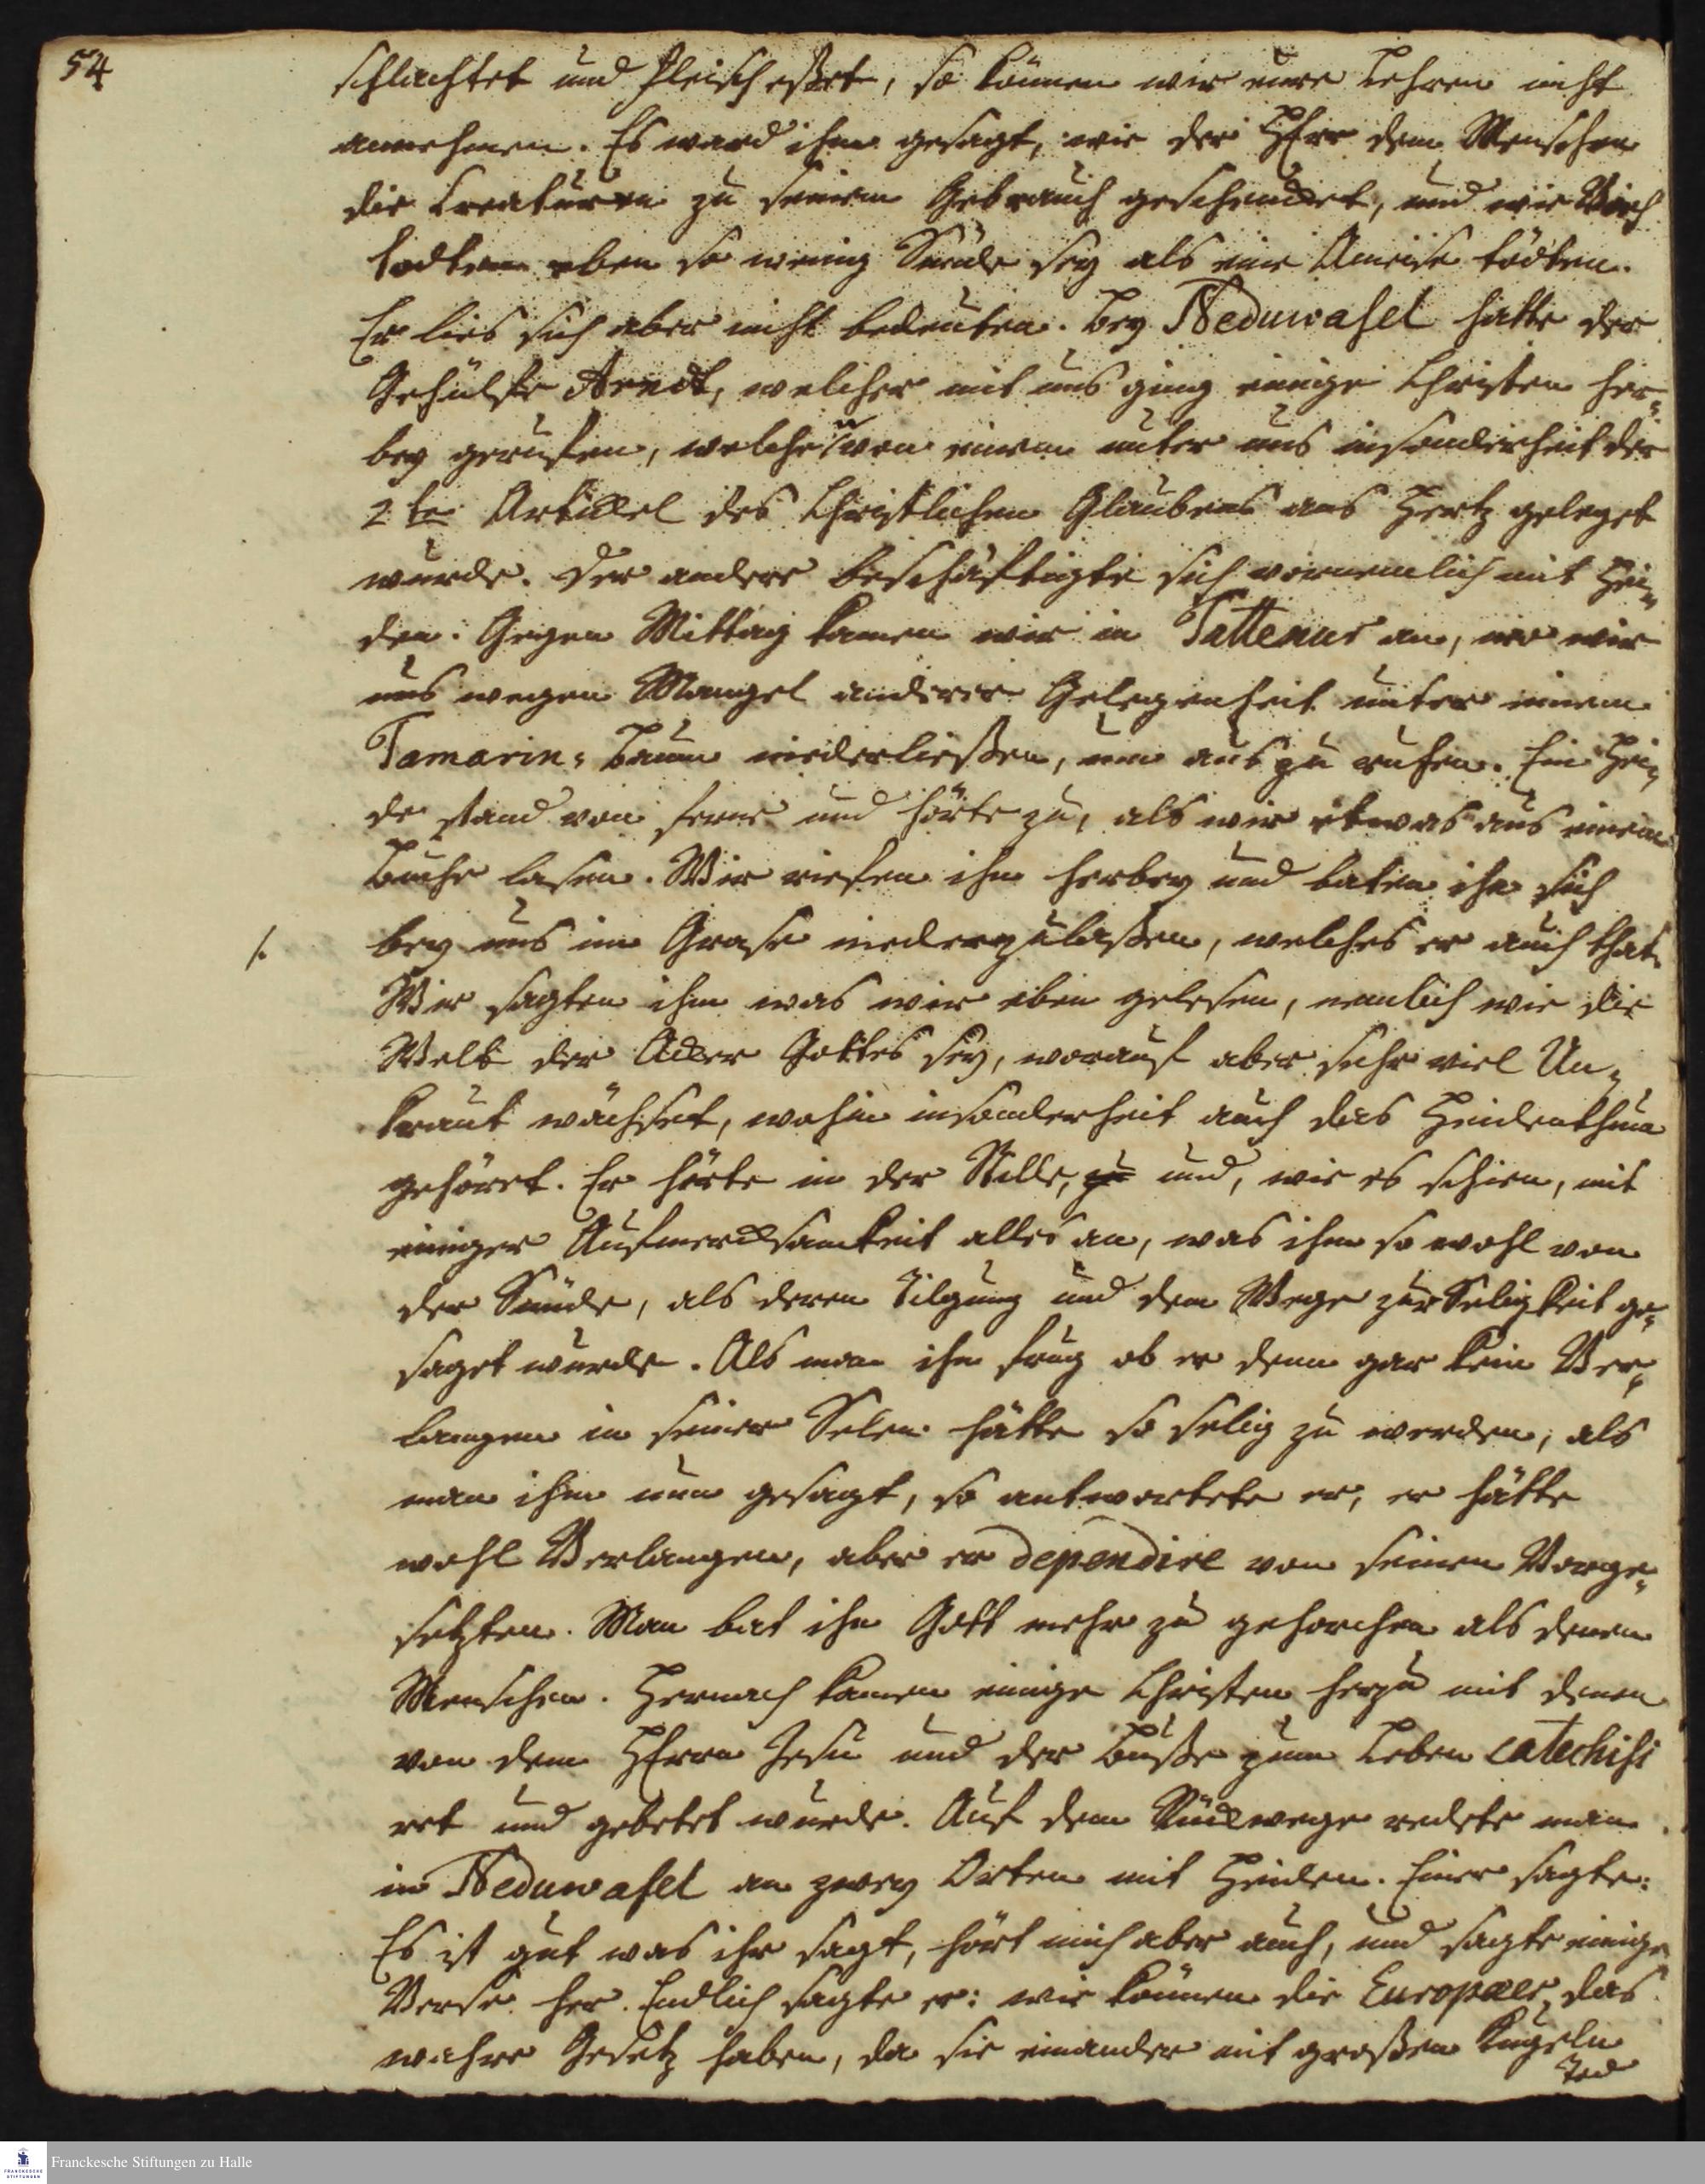 54
schlachtet und Fleisch eßet, so können wir eure Lehren nicht
annehmen. Es ward ihm gesagt, wie der HErr dem Menschen
die Creaturen zu seinem Gebrauch geschencket, und wie Vieh
tödten eben so wenig Sünde sey als eine Ameise tödten.
Er lies sich aber nicht bedeuten. Bey Neduwasel hatte der
Gehülfe Arndt, welcher mit uns ging einige Christen her-
bey gerufen, welchen von einem unter uns insonderheit der
2te Artickel des Christlichen Glaubens ans Hertz geleget
wurde. Der andere beschäftigte sich vornemlich mit Hei-
den. Gegen Mittag kamen wir in Tattenur an, wo wir
uns wegen Mangel anderer Gelegenheit unter einem
Tamarin-Baum niederließen, um aus zu ruhen. Ein Hei-
de stand von ferne und hörte zu, als wir etwas aus einem
Buche lasen. Wir riefen ihn herbey und baten ihn sich
/.
bey uns im Grase niederzulaßen, welches er auch that.
Wir sagten ihm was wir eben gelesen, nemlich wie die
Welt der Acker Gottes sey, worauf aber sehr viel Un-
kraut wächset, wohin insonderheit auch das Heidenthum
gehöret. Er hörte in der Stille, zu und, wie es schien, mit
einiger Aufmercksamkeit alles an, was ihm so wohl von
der Sünde, als deren Tilgung und dem Wege zur Seligkeit ge-
saget wurde. Als man ihn frug ob er denn gar kein Ver-
langen in seiner Selen hätte so selig zu werden, als
man ihm nun gesagt, so antwortete er, er hätte
wohl Verlangen, aber er dependire von seinen Vorge-
setzten. Man bat ihn Gott mehr zu gehorchen als denen
Menschen. Hernach kamen einige Christen herzu mit denen
von dem HErrn Jesu und der Buße zum Leben catechisi
ret und gebetet wurde. Auf dem Rückwege redete man
in Neduwasel an zwey Orten mit Heiden. Einer sagte:
Es ist gut was ihr sagt, hört mich aber auch, und sagte einige
Verse her. Endlich sagte er: wie können die Europäer das
wahre Gesetz haben, da sie einander mit großen Kugeln
Franckesche Stiftungen zu Halle
FRANCKESCHE STIFTUNGEN